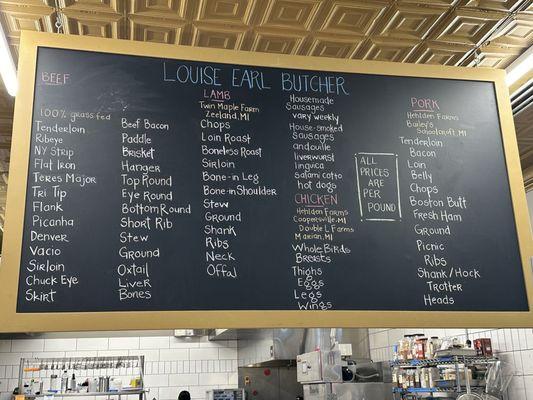 LOUISE EARL BUTCHER
BEEF
100% grass fed
Tenderloin
Ribeye
NY Strip
Flat Iron
Teres Major
Tri Tip
Flank
Picanha
Denver
Vacio
Sirloin
Chuck Eye
Skirt
Beef Bacon
Paddle
Brisket
Hanger
Top Round
Eye Round
Bottom Round
Short Rib
Stew
Ground
Oxtail
Liver
Bones
LAMB
Twin Maple Farm
Zeeland, MI
Chops
Loin Roast
Boneless Roast
Sirloin
Bone-in Leg
Bone-in Shoulder
Stew
Ground
Shank
Ribs
Neck
Offal
Housemade
Sausages
vary weekly
house-smoked
Sausages
andouille
liverwurst
linguica
salami cotto
hot dogs
CHICKEN
Hehlden Farms
Coopersville, MI
Double L Farms
Marion, MI
Whole Birds
Breasts
Thighs
Eggs
Legs
Wings
ALL
PRICES
ARE
PER
POUND
PORK
Hehlden Farms
Bailey's
Schoolcraft, MI
Tenderloin
Bacon
Loin
Belly
Chops
Boston Butt
Fresh Ham
Ground
Picnic
Ribs
Shank/Hock
Trotter
Heads